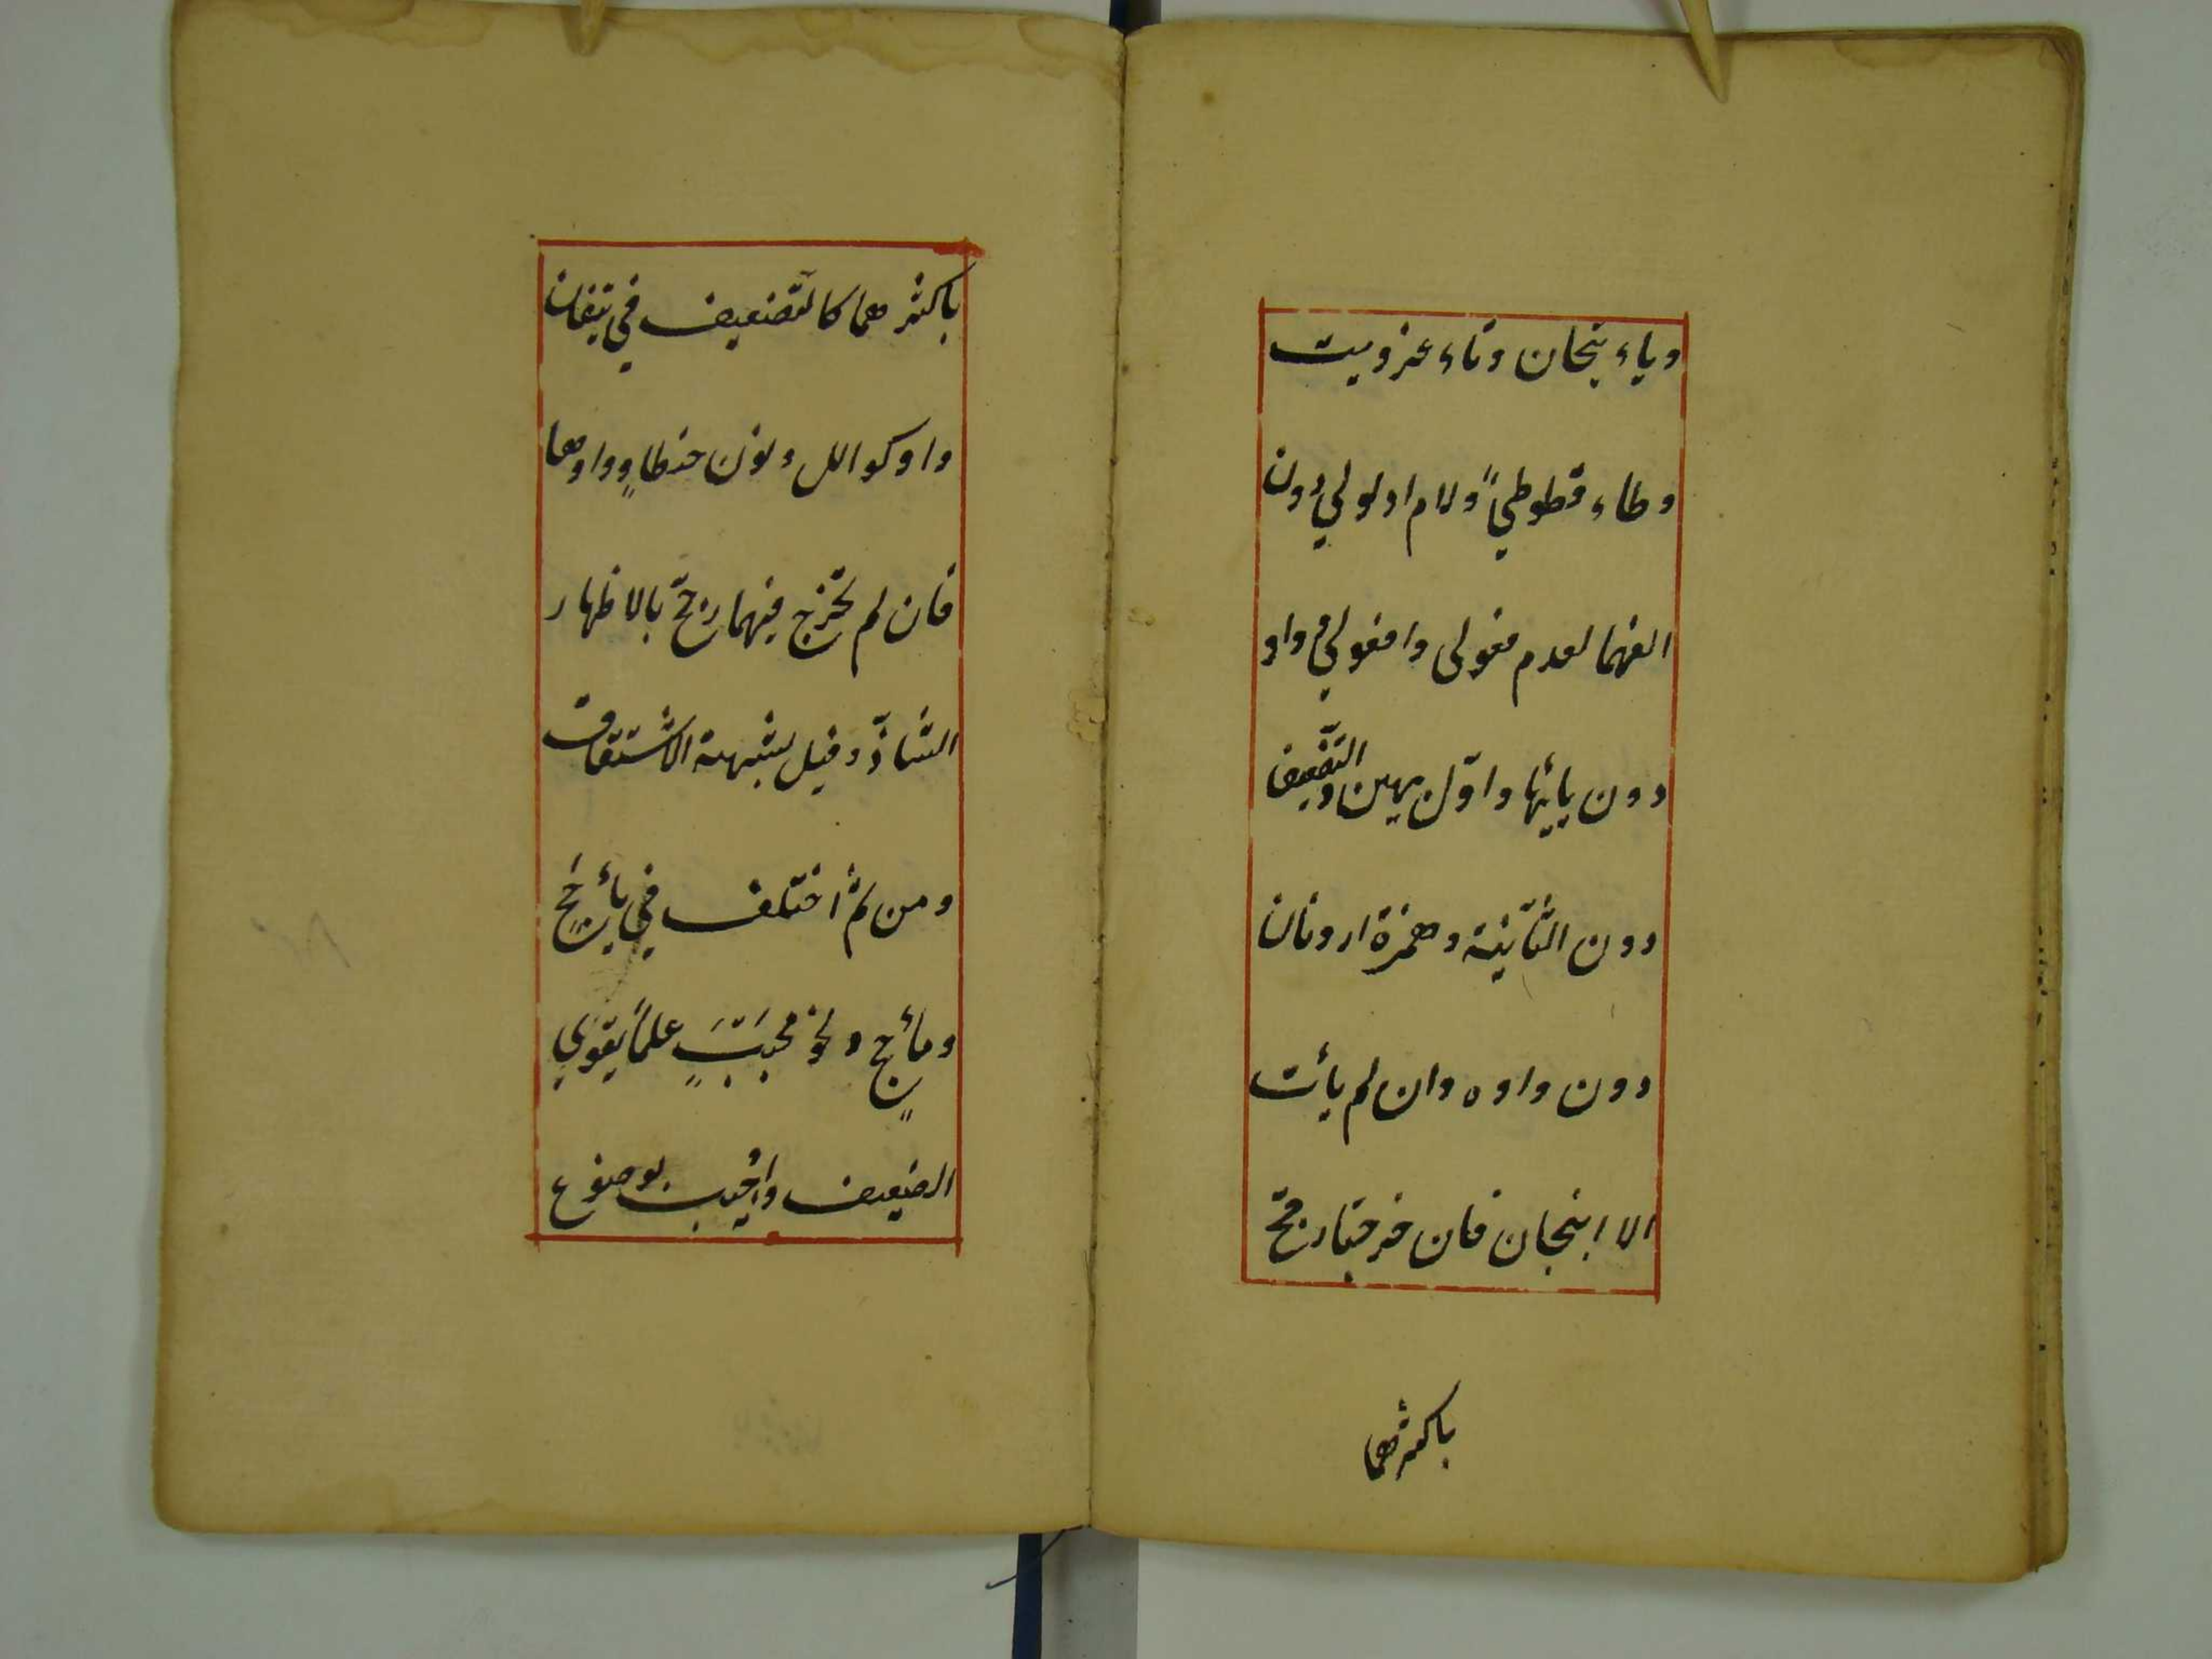 وياء تيحان وتاء عزويت
وطاء قطوطي ولام ادلولي دون
الفهما لعدم فعولى وافعولي وواو
دون يائها واوّل يهير والتّضعيف
دون الثّانية وهمزة ارونان
دون واوه وان لم يأت
الا انبجان فان خرجتا رجّح
باكثرهما
باكثرهما كالتّضعيف في تيفان
واو كوالل ونون حنطاوٍ وواوها
فان لم تخرج فيهما رجّح بالاظهار
الشاذّ وقيل بشبهة الاشتقاق
ومن ثمّ اختلف في يأجج
ومأجج ونحو محبب علما يقوّي
الضعيف واجيب بوضوع